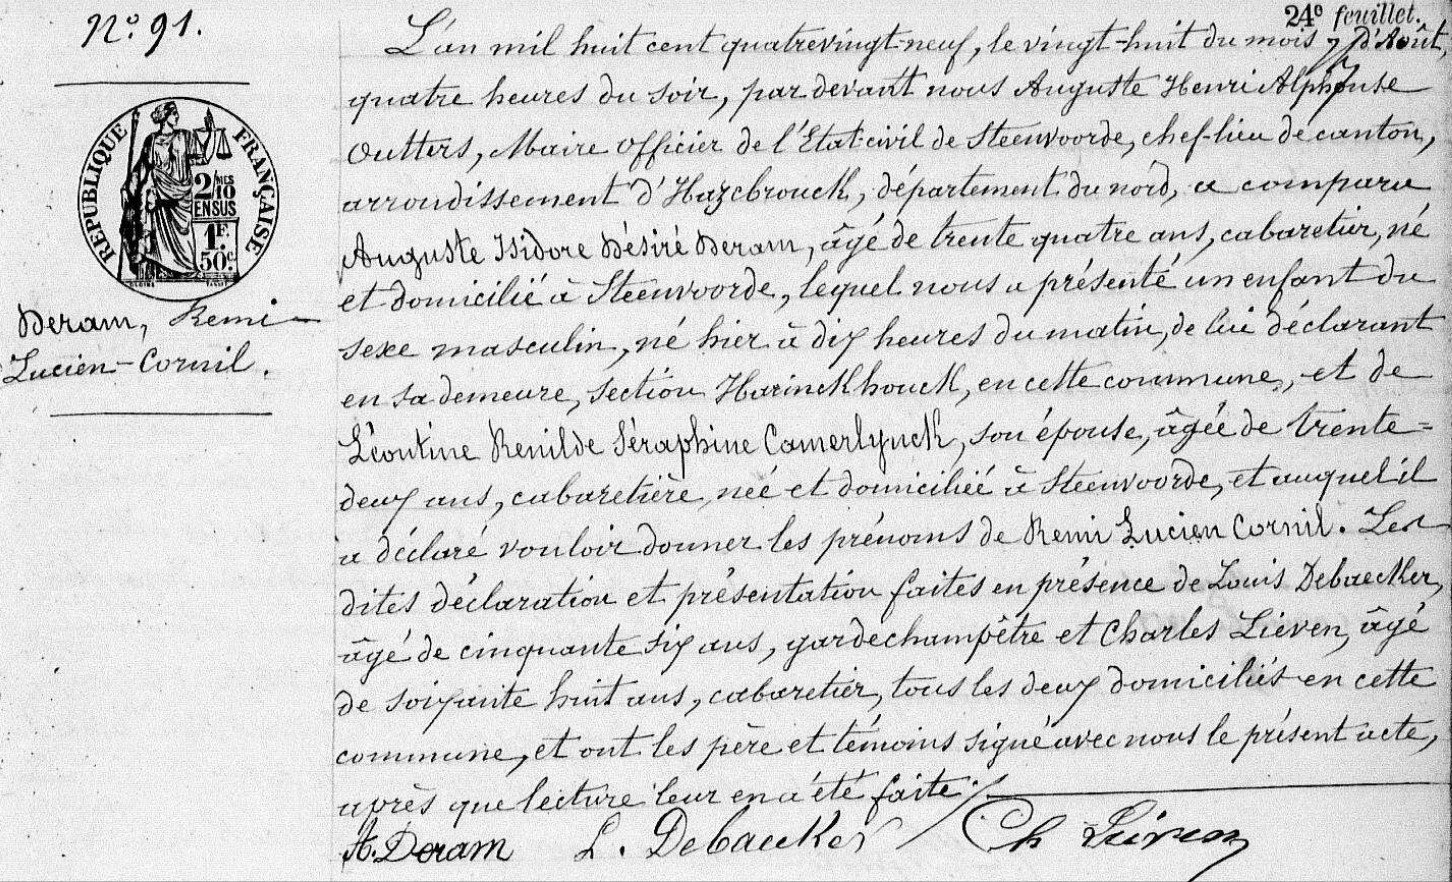 24e feuillet.
No. 91.
L'an mil huit cent quatrevingt-neuf, le vingt-huit du mois d'Août,
quatre heures du soir, par devant nous Auguste Henri Alphonse
Outters, Maire officier de l'Etat-civil de Steenvoorde, chef-lieu de canton,
arrondissement d'Hazebrouck, département du nord, a comparu
Auguste Isidore Désiré Deram, âgé de trente quatre ans, cabaretier, né
et domicilié à Steenvoorde, lequel nous a présenté un enfant du
sexe masculin, né hier à dix heures du matin, de lui déclarant
en sa demeure, section Harinckhouck, en cette commune, et de
Léontine Renilde Séraphine Camerlynck, son épouse, âgée de trente=
deux ans, cabaretière, née et domiciliée à Steenvoorde, et auquel il
a déclaré vouloir donner les prénoms de Remi Lucien Cornil. Les
dites déclaration et présentation faites en présence de Louis Debaecker,
âgé de cinquante six ans, gardechampêtre et Charles Lieven, âgé
de soixante huit ans, cabaretier, tous les deux domiciliés en cette
commune, et ont les père et témoins signé avec nous le présent acte,
après que lecture leur en a été faite ./.
A. Deram L. Debaecker Ch Lieven
RÉPUBLIQUE FRANÇAISE
2/10 MES
EN SUS
1F.
50c.
Deram, Remi-
Lucien-Cornil.